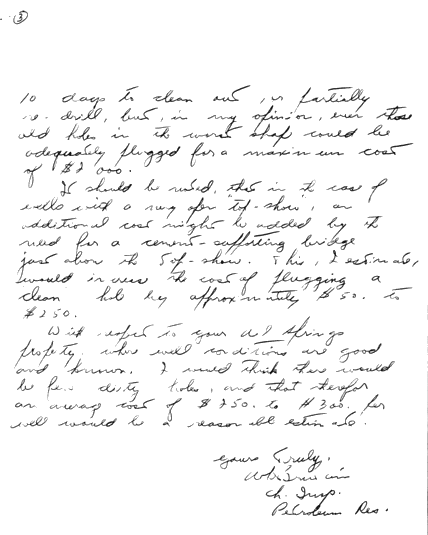 ③
10 days to clean out, or partially
re-drill, but, in my opinion, even those
old holes in the worst shape could be
adequately plugged for a maximum cost
of $2'000.
It should be noted, that in the case of
wells with a very open "top-show", an
additional cost might be added by the
need for a cement-supporting bridge
just above the top-show. This, I estimate,
would increase the cost of plugging a
clean hole by approximately $50. to
$250.
With respect to your Springs
property, where well conditions are good
and known. I would think there would
be few dirty holes, and that therefor
an average cost of $250. to $300. per
well would be a reasonable estimate.
Yours Truly,
Ch. Insp.
Petroleum Res.